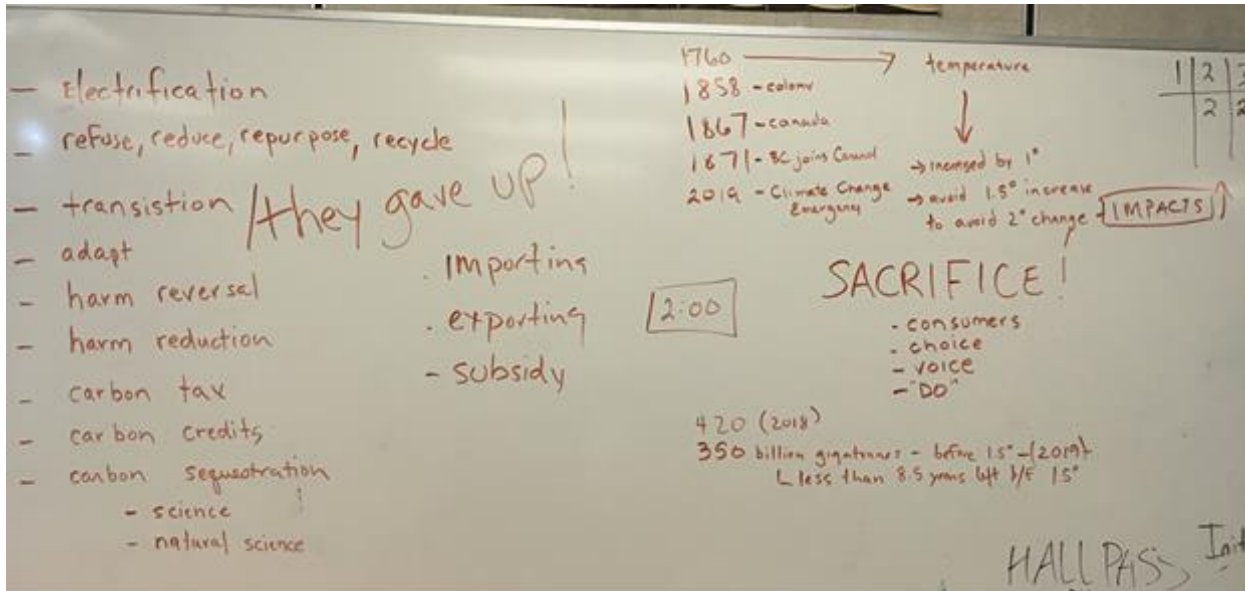 - Electrification
- refuse, reduce, repurpose, recycle
- transistion / they gave up!
- adapt
- harm reversal
- harm reduction
- carbon tax
- carbon credits
- carbon sequestration
- science
- natural science
. Importing
. exporting
- subsidy
2:00
1760 → temperature
1858 - colony
1867 - canada
1871 - BC joins
→ increased by 1°
2019 - Climate Change
Emergency
→ avoid 1.5° increase
to avoid 2° change - IMPACTS
SACRIFICE!
- consumers
- choice
- voice
- "DO"
420 (2018)
350 billion gigatonnes - before 1.5° - (2019)
less than 8.5 years left b/f 1.5°
1 2
2 2
HALL PASS
Init